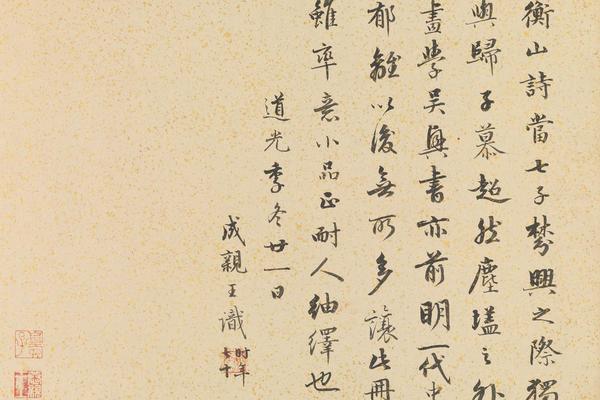 衡山詩當七子棼興之際獨
與歸子慕超然塵壒之外
畫學吳興書亦前明一代中
郁離以後無所多讓此冊
雖率意小品正耐人紬繹也
道光季冬廿一日
成親王識
時年
七十